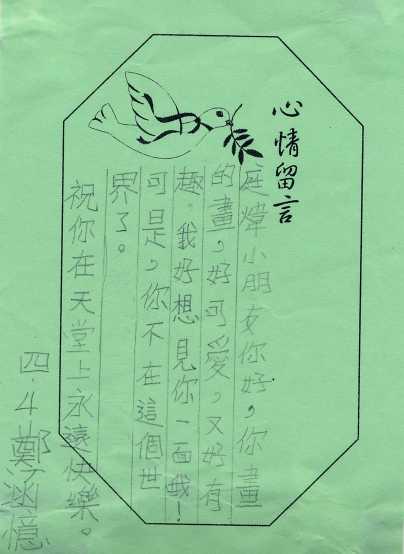 心情留言
庭煒小朋友你好，你畫
的畫，好可愛，又好有
趣。我好想見你一面哦！
可是，你不在這個世
界了。
祝你在天堂上永遠快樂。
四.4鄭涵憶